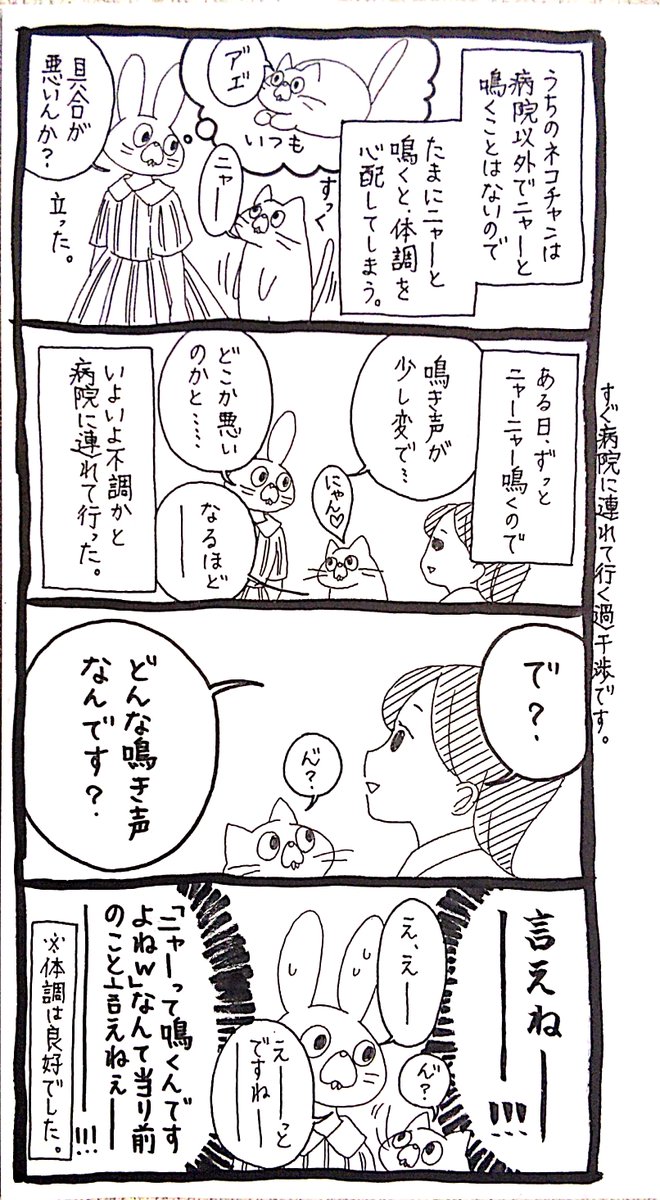 うちのネコチャンは
病院以外でニャーと
鳴くことはないので
たまにニャーと
鳴くと、体調を
心配してしまう。
アエ゛
いつも
すっく
ニャー
具合が
悪いんか?
立った。
ある日、ずっと
ニャーニャー鳴くので
鳴き声が
少し変で…
にゃん♡
どこか悪い
のかと……
なるほどー
いよいよ不調かと
病院に連れて行った。
すぐ病院に連れて行く過干渉です。
で?
ん?
どんな鳴き声
なんです?
言えねーー!!!
え、えー
ん?
えーーっと
ですねーー
「ニャーって鳴くんです
よねw」なんて当り前
のこと言えねぇーー!!!
※体調は良好でした。